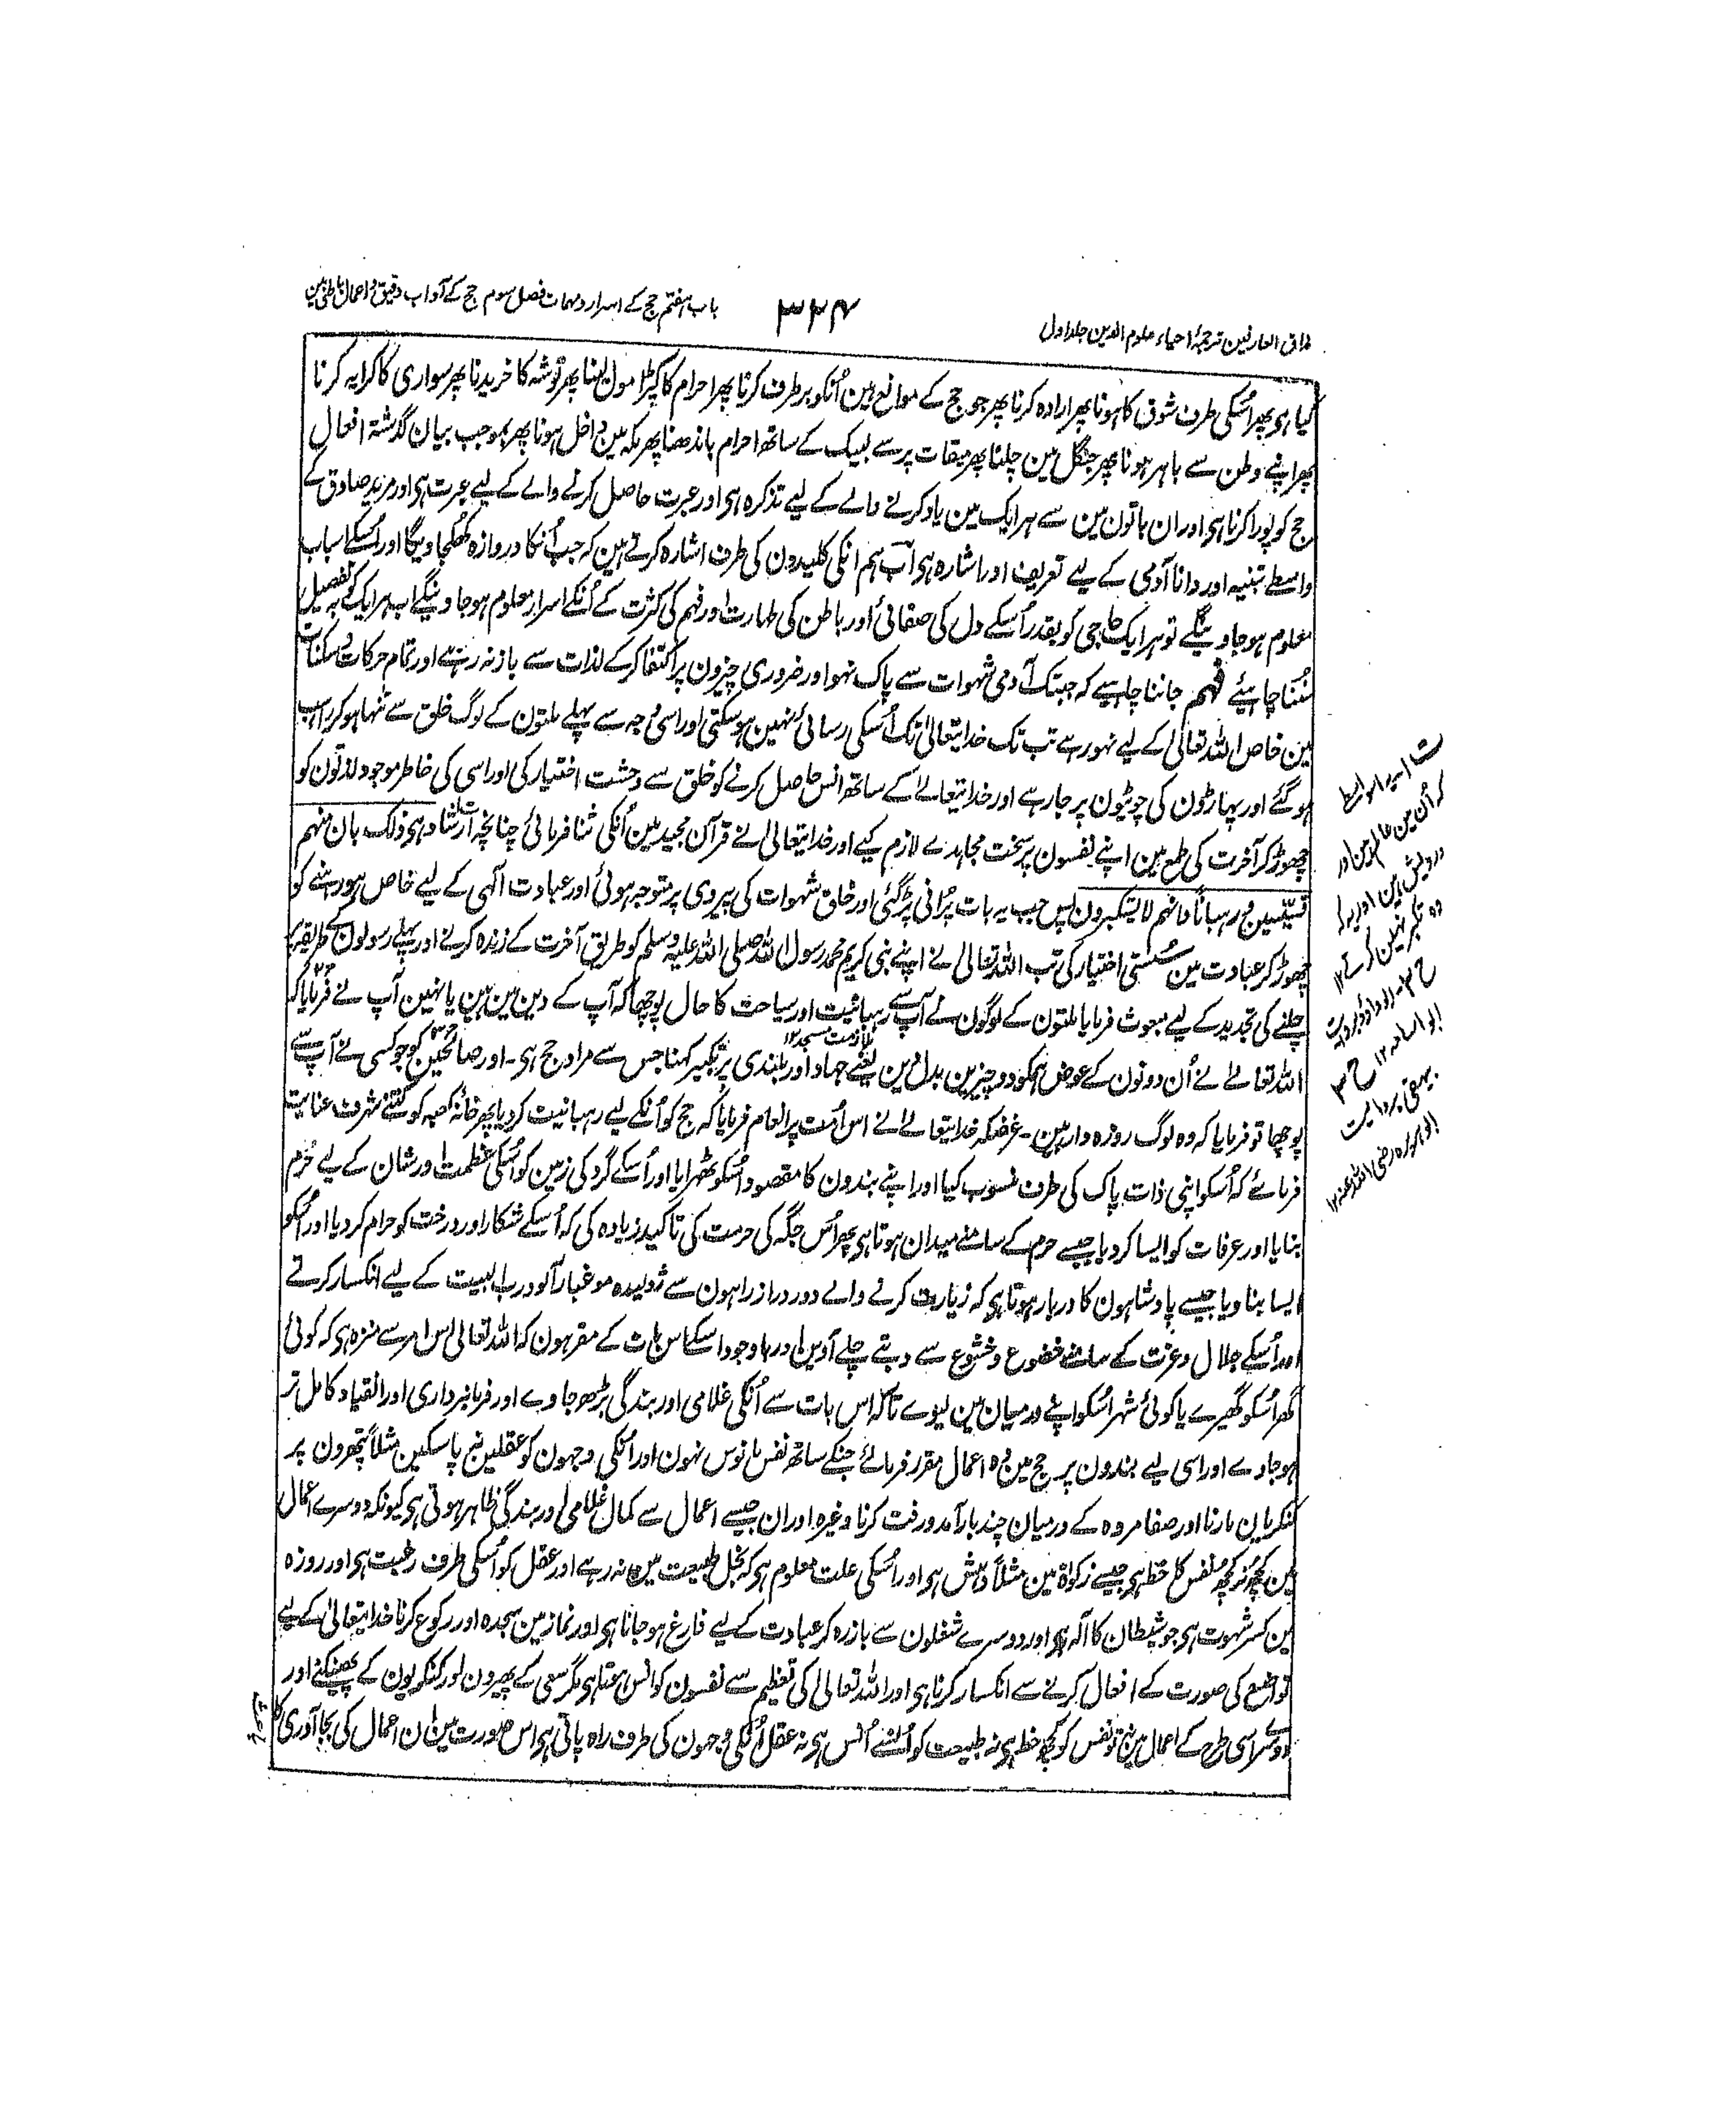 مذاق العارفین ترجمۂ احیاء علوم الدین جلد اول
۳۲۴
باب ہفتم حج کے اسرار و مہمات فصل سوم حج کے آداب دقیق و اعمال باطنی مین
کیا ہی پھر اُسکی طرف شوق کا ہونا پھر ارادہ کرنا پھر جو حج کے موانع ہین اُنکو برطرف کرنا پھر احرام کا کپڑا مول لینا پھر توشہ کا خریدنا پھر سواری کا کرایہ کرنا
پھر اپنے وطن سے باہر ہونا پھر جنگل مین چلنا پھر میقات پر سے لبیک کے ساتھ احرام باندھنا پھر مکہ مین داخل ہونا پھر بموجب بیان گذشتہ افعال
حج کو پورا کرنا ہی اور ان باتون مین سے ہر ایک مین یاد کرنے والے کے لیے تذکرہ ہی اور عبرت حاصل کرنے والے کے لیے عبرت ہی اور مرید صادق کے
واسطے تنبیہ اور دانا آدمی کے لیے تعریف اور اشارہ ہی اب ہم انکی کلیدون کی طرف اشارہ کرتے ہین کہ جب اُنکا دروازہ کھلجاویگا اور اُسکے اسباب
معلوم ہو جاوینگے تو ہر ایک حاجی کو بقدر اُسکے دل کی صفائی اور باطن کی طہارت اور فہم کی کثرت کے اُنکے اسرار معلوم ہو جاوینگے اب ہر ایک کو بہ تفصیل
سُننا چاہیئے فہم جاننا چاہیے کہ جبتک آدمی شہوات سے پاک نہو اور ضروری چیزون پر اکتفا کرکے لذات سے باز نہ رہے اور تمام حرکات و سکنات
مین خاص اللہ تعالیٰ کے لیے نہو رہے تب تک خدایتعالیٰ تک اُسکی رسائی نہین ہو سکتی اور اسی وجہ سے پہلے ملتون کے لوگ خلق سے تنہا ہو کر راہب
ہو گئے اور پہاڑون کی چوٹیون پر جا رہے اور خدایتعالےٰ کے ساتھ انس حاصل کرنے کو خلق سے وحشت اختیار کی اور اسی کی خاطر موجود لذتون کو
چھوڑ کر آخرت کی طمع مین اپنے نفسون پر سخت مجاہدے لازم کیے اور خدایتعالیٰ نے قرآن مجید مین اُنکی ثنا فرمائی چنانچہ ارشاد ہی ذلک بان منہم
قسیّسین و رہبانًا و انہم لا یستکبرون پس جب یہ بات پُرانی پڑ گئی اور خلق شہوات کی پیروی پر متوجہ ہوئی اور عبادت الٰہی کے لیے خاص ہو رہنے کو
چھوڑ کر عبادت مین سُستی اختیار کی تب اللہ تعالیٰ نے اپنے نبی کریم محمد رسول اللہ صلی اللہ علیہ وسلم کو طریق آخرت کے زندہ کرنے اور پہلے رسولون کے طریقہ پر
چلنے کی تجدید کے لیے مبعوث فرمایا ملتون کے لوگون نے آپ سے رہبانیت اور سیاحت کا حال پوچھا کہ آپ کے دین مین ہین یا نہین آپ نے فرمایا کہ
اللہ تعالےٰ نے اُن دونون کے عوض ہمکو دو چیزین بدل دین یعنے جہاد اور بلندی پر تکبیر کہنا جس سے مراد حج ہی۔ اور صائمین کو جو کسی نے آپ سے
پوچھا تو فرمایا کہ وہ لوگ روزہ دار ہین۔ غرضکہ خدایتعالےٰ نے اس اُمت پر انعام فرمایا کہ حج کو اُنکے لیے رہبانیت کر دیا پھر خانہ کعبہ کو کتنے شرف عنایت
فرمائے کہ اُسکو اپنی ذات پاک کی طرف منسوب کیا اور اپنے بندون کا مقصود اُسکو ٹھہرایا اور اُسکے گرد کی زمین کو اُسکی عظمت اور شان کے لیے حرم
بنایا اور عرفات کو ایسا کر دیا جیسے حرم کے سامنے میدان ہوتا ہی پھر اُس جگہ کی حرمت کی تاکید زیادہ کی کہ اُسکے شکار اور درخت کو حرام کر دیا اور اُسکو
ایسا بنا دیا جیسے پادشاہون کا دربار ہوتا ہی کہ زیارت کرنے والے دور دراز راہون سے ژولیدہ مو غبار آلود رب البیت کے لیے انکسار کرتے
اور اُسکے جلال و عزت کے سامنے خضوع و خشوع سے دبتے چلے آوین اور باوجود اسکے اس بات کے مقر ہون کہ اللہ تعالیٰ اس امر سے منزہ ہی کہ کوئی
گھر اُسکو گھیرے یا کوئی شہر اُسکو اپنے درمیان مین لیوے تاکہ اس بات سے اُنکی غلامی اور بندگی بڑھ جاوے اور فرمانبرداری اور انقیاد کامل تر
ہو جاوے اور اسی لیے بندون پر حج مین وہ اعمال مقرر فرمائے جنکے ساتھ نفس مانوس نہون اور اُنکی وجہون کو عقلین نہ پا سکین مثلاً پتھرون پر
کنکریان مارنا اور صفا مروہ کے درمیان چند بار آمد و رفت کرنا وغیرہ اور ان جیسے اعمال سے کمال غلامی اور بندگی ظاہر ہوتی ہی کیونکہ دوسرے اعمال
مین کچھ نہ کچھ نفس کا حظ ہی جیسے زکوٰۃ مین مثلاً دہش ہی اور اُسکی علت معلوم ہی کہ بخل طبیعت مین نہ رہے اور عقل کو اُسکی طرف رغبت ہی اور روزہ
مین کسر شہوت ہی جو شیطان کا آلہ ہی اور دوسرے شغلون سے باز رہ کر عبادت کے لیے فارغ ہو جانا ہی اور نماز مین سجدہ اور رکوع کرنا خدایتعالیٰ کے لیے
تواضع کی صورت کے افعال کرنے سے انکسار کرنا ہی اور اللہ تعالیٰ کی تعظیم سے نفسون کو انس ہوتا ہی مگر سعی کے پھیرون اور کنکریون کے پھینکنے اور
دوسرے اسی طرح کے اعمال مین نہ تو نفس کو کچھ حظ ہی نہ طبیعت کو اُنسے اُنس ہی نہ عقل اُنکی وجہون کی طرف راہ پاتی ہی اس صورت مین ان اعمال کی بجا آوری کا
ملازمت مسجد ۱۲
ت ا یہ اسواسطے
کہ اُن مین عالم ہین اور
درویش ہین اور یہ کہ
وہ تکبر نہین کرتے ۱۲
ح ۲ ابو داؤد بروایت
ابو امامہ ۱۲ ح ۳
بیہقی بروایت
ابو ہریرہ رضی اللہ عنہ ۱۲